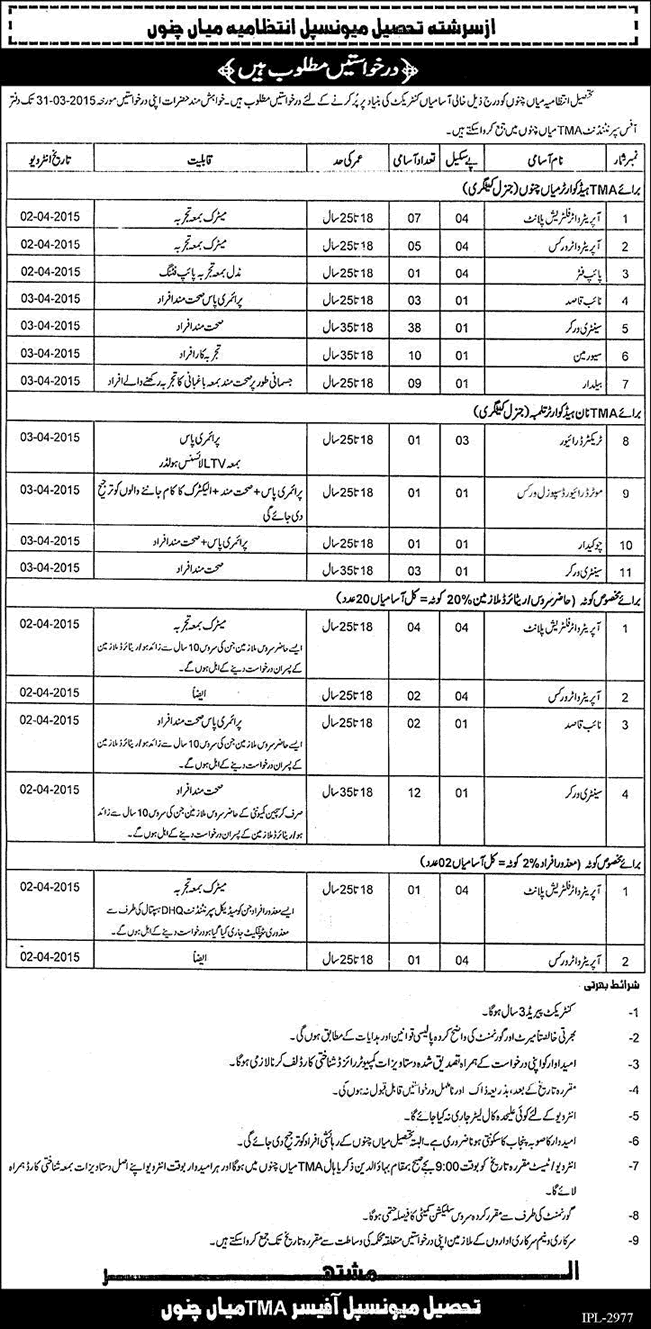 ازسرشتہ تحصیل میونسپل انتظامیہ میاں چنوں
درخواستیں مطلوب ہیں
تحصیل انتظامیہ میاں چنوں کو درج ذیل خالی آسامیاں کنٹریکٹ کی بنیاد پر پُر کرنے کے لئے درخواستیں مطلوب ہیں۔ خواہش مند حضرات اپنی درخواستیں مورخہ 31-03-2015 تک دفتر
آفس سپرنٹنڈنٹ TMA میاں چنوں میں جمع کروا سکتے ہیں۔
نمبر شمار نام آسامی پے سکیل تعداد آسامی عمر کی حد قابلیت تاریخ انٹرویو
برائے TMA ہیڈ کوارٹر میاں چنوں (جنرل کیٹگری)
1 آپریٹر واٹر فلٹریشن پلانٹ 04 07 18 تا 25 سال میٹرک بمعہ تجربہ 02-04-2015
2 آپریٹر واٹر ورکس 04 05 18 تا 25 سال میٹرک بمعہ تجربہ 02-04-2015
3 پائپ فٹر 04 01 18 تا 25 سال مڈل بمعہ تجربہ پائپ فٹنگ 02-04-2015
4 نائب قاصد 01 03 18 تا 25 سال پرائمری پاس صحت مند افراد 03-04-2015
5 سینٹری ورکر 01 38 18 تا 35 سال صحت مند افراد 03-04-2015
6 سیور مین 01 10 18 تا 35 سال تجربہ کار افراد 03-04-2015
7 بیلدار 01 09 18 تا 25 سال جسمانی طور پر صحت مند بمعہ باغبانی کا تجربہ رکھنے والے افراد 03-04-2015
برائے TMA نان ہیڈ کوارٹر تلمبہ (جنرل کیٹگری)
8 ٹریکٹر ڈرائیور 03 01 18 تا 25 سال پرائمری پاس 03-04-2015
بمعہ LTV لائسنس ہولڈر
9 موٹر ڈرائیور ڈسپوزل ورکس 01 01 18 تا 25 سال پرائمری پاس + صحت مند + الیکٹرک کا کام جاننے والوں کو ترجیح 03-04-2015
دی جائے گی
10 چوکیدار 01 01 18 تا 25 سال پرائمری پاس + صحت مند افراد 03-04-2015
11 سینٹری ورکر 01 03 18 تا 35 سال صحت مند افراد 03-04-2015
برائے مخصوص کوٹہ (حاضر سروس / ریٹائرڈ ملازمین 20% کوٹہ = کل آسامیاں 20 عدد)
1 آپریٹر واٹر فلٹریشن پلانٹ 04 04 18 تا 25 سال میٹرک بمعہ تجربہ 02-04-2015
ایسے حاضر سروس ملازمین جن کی سروس 10 سال سے زائد ہو / ریٹائرڈ ملازمین
کے پسران درخواست دینے کے اہل ہوں گے۔
2 آپریٹر واٹر ورکس 04 02 18 تا 25 سال ایضاً 02-04-2015
3 نائب قاصد 01 02 18 تا 25 سال پرائمری پاس صحت مند افراد 02-04-2015
ایسے حاضر سروس ملازمین جن کی سروس 10 سال سے زائد ہو / ریٹائرڈ ملازمین
کے پسران درخواست دینے کے اہل ہوں گے۔
4 سینٹری ورکر 01 12 18 تا 35 سال صحت مند افراد 02-04-2015
صرف کرسچین کمیونٹی کے حاضر سروس ملازمین جن کی سروس 10 سال سے زائد
ہو / ریٹائرڈ ملازمین کے پسران درخواست دینے کے اہل ہوں گے۔
برائے مخصوص کوٹہ (معذور افراد 2% کوٹہ = کل آسامیاں 02 عدد)
1 آپریٹر واٹر فلٹریشن پلانٹ 04 01 18 تا 25 سال میٹرک بمعہ تجربہ 02-04-2015
ایسے معذور افراد جن کو میڈیکل سپرنٹنڈنٹ DHQ ہسپتال کی طرف سے
معذوری سرٹیفکیٹ جاری کیا گیا ہو درخواست دینے کے اہل ہوں گے۔
2 آپریٹر واٹر ورکس 04 01 18 تا 25 سال ایضاً 02-04-2015
شرائط بھرتی
1- کنٹریکٹ پیریڈ 3 سال ہوگا۔
2- بھرتی خالصتاً میرٹ اور گورنمنٹ کی واضح کردہ پالیسی قوانین اور ہدایات کے مطابق ہوں گی۔
3- امیدوار کو اپنی درخواست کے ہمراہ تصدیق شدہ دستاویزات کمپیوٹرائزڈ شناختی کارڈ لف کرنا لازمی ہوگا۔
4- مقررہ تاریخ کے بعد، بذریعہ ڈاک اور نامکمل درخواستیں قابل قبول نہ ہوں گی۔
5- انٹرویو کے لئے کوئی علیحدہ کال لیٹر جاری نہ کیا جائے گا۔
6- امیدوار کا صوبہ پنجاب کا سکونتی ہونا ضروری ہے۔ البتہ تحصیل میاں چنوں کے رہائشی افراد کو ترجیح دی جائے گی۔
7- انٹرویو / ٹیسٹ مقررہ تاریخ کو بوقت 9:00 بجے صبح بمقام بہاؤالدین زکریا ہال TMA میاں چنوں میں ہوگا اور ہر امیدوار بوقت انٹرویو اپنے اصل دستاویزات بمعہ شناختی کارڈ ہمراہ
لائے گا۔
8- گورنمنٹ کی طرف سے مقرر کردہ سروس سلیکشن کمیٹی کا فیصلہ حتمی ہوگا۔
9- سرکاری و نیم سرکاری اداروں کے ملازمین اپنی درخواستیں متعلقہ محکمہ کی وساطت سے مقررہ تاریخ تک جمع کروا سکتے ہیں۔
المشتہر
تحصیل میونسپل آفیسر TMA میاں چنوں
IPL-2977